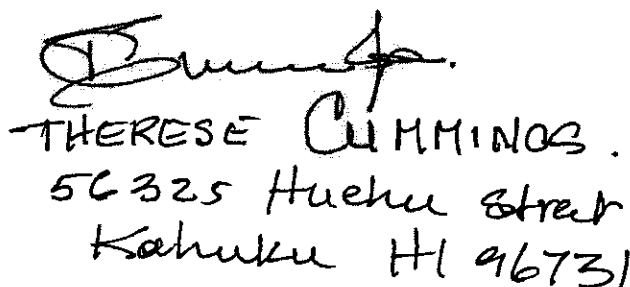 THERESE CUMMINGS.
56325 Huehu Street
Kahuku HI 96731